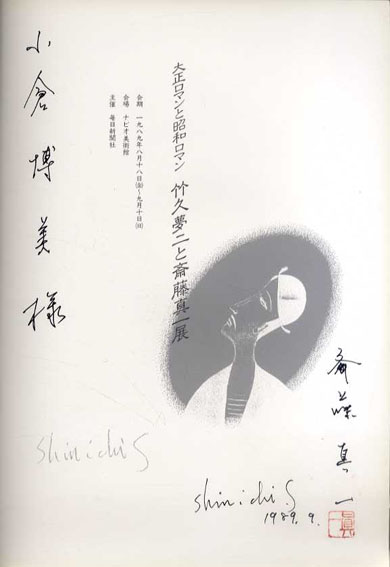 大正ロマンと昭和ロマン 竹久夢二と斎藤真一展
会期 一九八九年八月十八日㈮〜九月十日㈰
会場 ナビオ美術館
主催 毎日新聞社
小倉博美様
斎藤真一
shinichi S
shinichi.S
1989. 9.